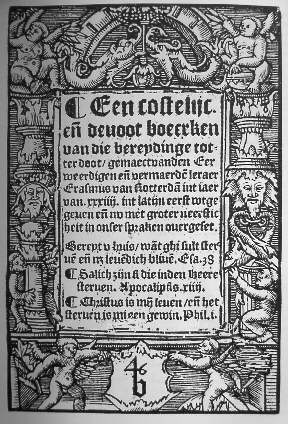 ¶ Een costelijc.
en̄ deuoot boecxken
van die bereydinge tot-
ter doot / gemaect vanden Eer
weerdigen en̄ vermaerdē leraer
Erasmus van Rotterdā int iaer
van. xxxiiij. int latijn eerst wtge
geuen en̄ nv met groter neerstic
heit in onser spraken ouergeset.
Bereyt v huis / wāt ghi sult ster
uē en̄ nz leuēdich bliuē. Esa. 38
¶ Salich zijn si die inden Heere
steruen. Apocalipsis. xiiij.
¶ Christus is mij leuen / en̄ het
steruen is mijn gewin. Phil. i.